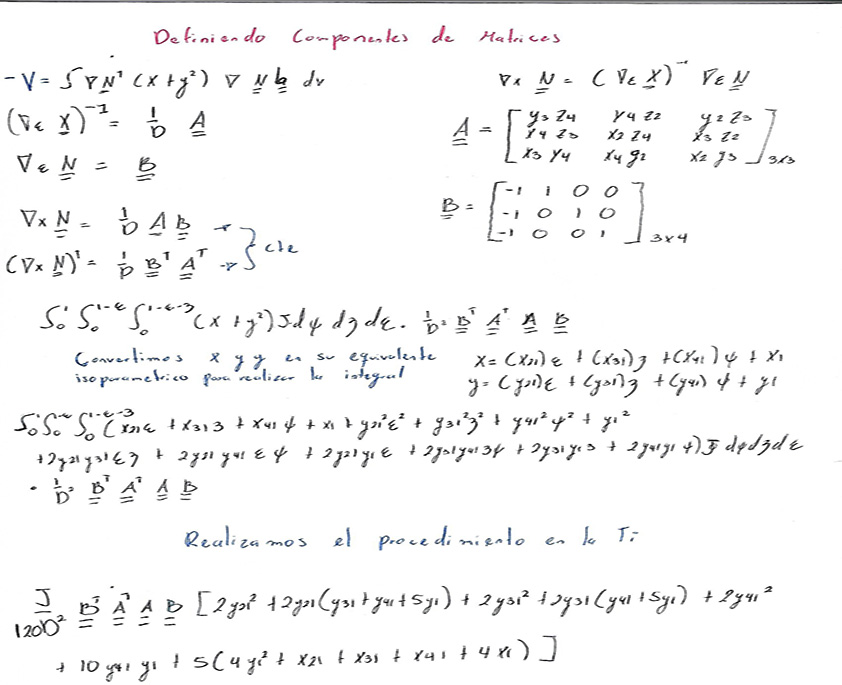 Definiendo Componentes de Matrices
-V = ∫ ∇N^T (x + y²) ∇ N b dv
∇x N = (∇ε X)^-1 ∇ε N
(∇ε X)^-1 = 1/D A
∇ε N = B
A = [y3 z4 y4 z2 y2 z3
x4 z3 x2 z4 x3 z2
x3 y4 x4 y2 x2 y3] 3x3
B = [-1 1 0 0
-1 0 1 0
-1 0 0 1] 3x4
∇x N = 1/D A B
(∇x N)^T = 1/D B^T A^T } cte
∫₀¹ ∫₀^1-ε ∫₀^1-ε-ʒ (x + y²) J dψ dʒ dε · 1/D² B^T A^T A B
Convertimos x y y en su equivalente
isoparametrico para realizar la integral
x = (x21)ε + (x31)ʒ + (x41)ψ + x1
y = (y21)ε + (y31)ʒ + (y41)ψ + y1
∫₀¹ ∫₀^1-ε ∫₀^1-ε-ʒ (x21ε + x31ʒ + x41ψ + x1 + y21²ε² + y31²ʒ² + y41²ψ² + y1²
+2y21y31εʒ + 2y21y41εψ + 2y21y1ε + 2y31y41ʒψ + 2y31y1ʒ + 2y41y1ψ) J dψdʒdε
· 1/D² B^T A^T A B
Realizamos el procedimiento en la Ti
J/120D² B^T A^T A B [2y21² + 2y21(y31+y41+5y1) + 2y31² + 2y31(y41+5y1) + 2y41²
+ 10y41y1 + 5(4y1² + x21 + x31 + x41 + 4x1)]